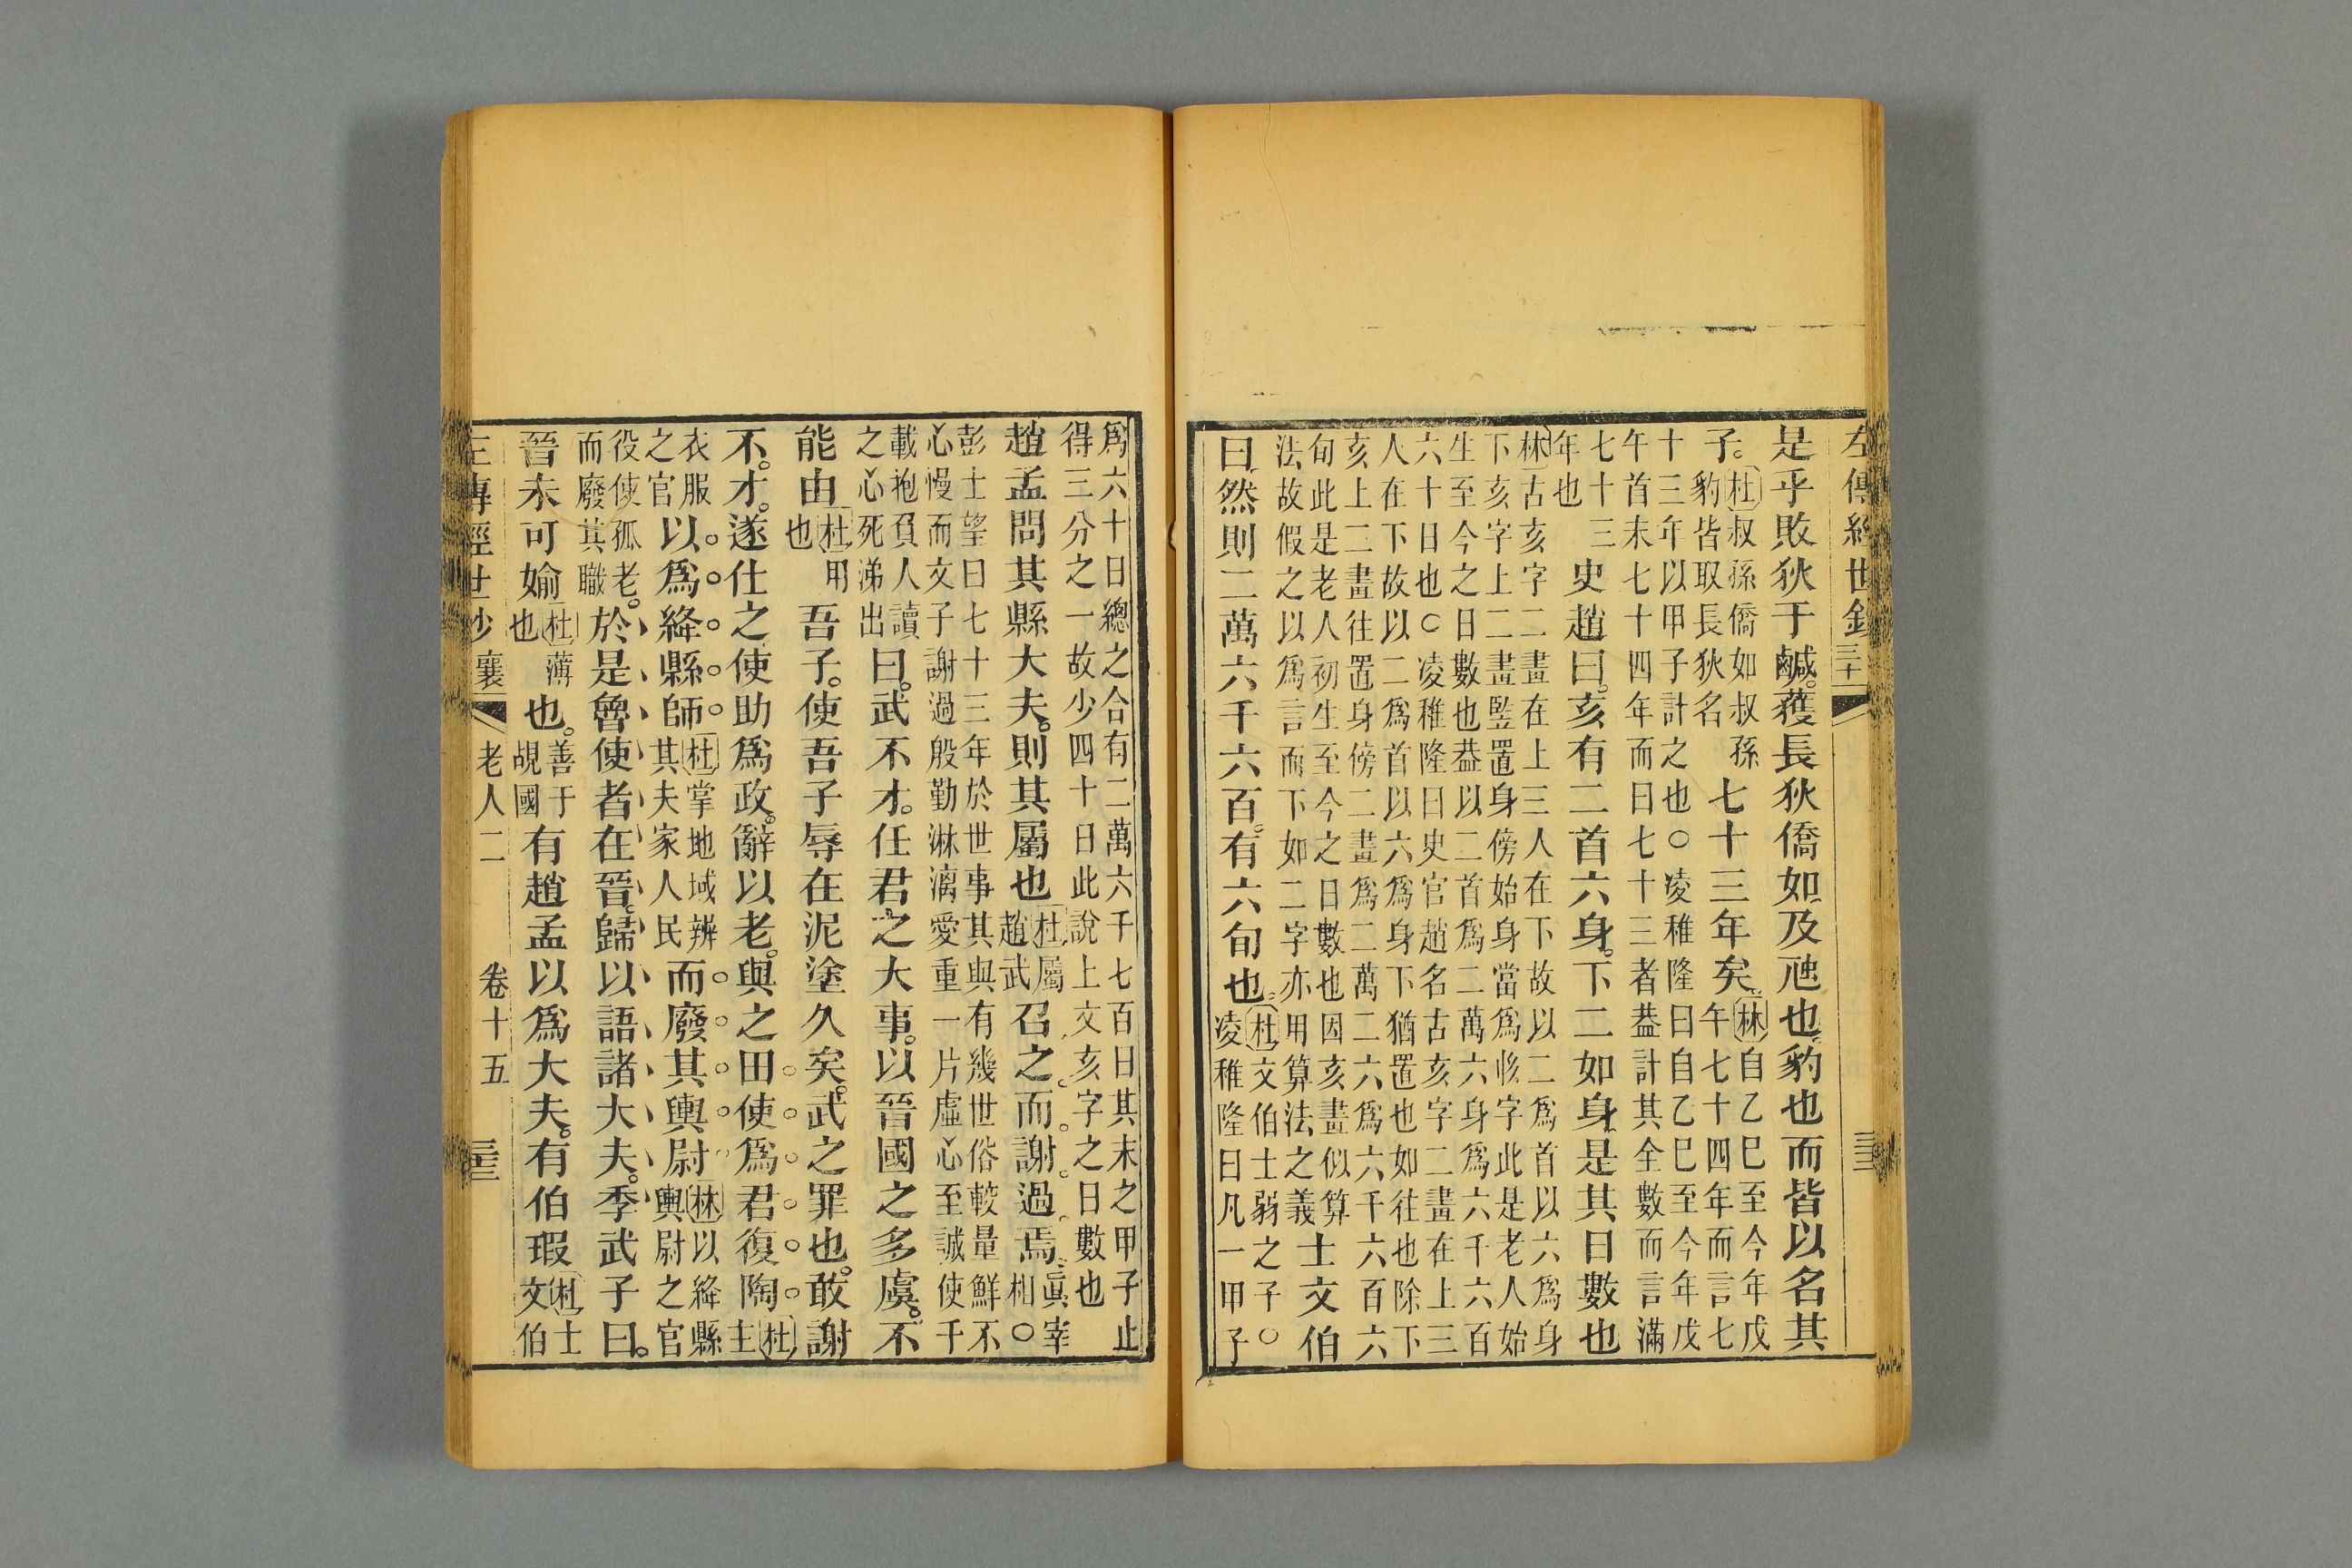 左傳經世鈔
三十
是乎敗狄于鹹。獲長狄僑如及虺也。豹也而皆以名其
子。杜叔孫僑如叔孫
豹皆取長狄名
七十三年矣林自乙巳至今年戊
午七十四年而言七
十三年以甲子計之也○凌稚隆曰自乙巳至今年戊
午首末七十四年而曰七十三者葢計其全數而言滿
七十三
年也
史趙曰。亥有二首六身。下二如身。是其日數也
林古亥字二畫在上三人在下故以二爲首以六爲身
下亥字上二畫竪置身傍始身當爲㣎字此是老人始
生至今之日數也葢以二首爲二萬六身爲六千六百
六十日也○凌稚隆曰史官趙名古亥字二畫在上三
人在下故以二爲首以六爲身下猶置也如往也除下
亥上二畫往置身傍二畫爲二萬二六爲六千六百六
旬此是老人初生至今之日數也因亥畫似算
法故假之以爲言而下如二字亦用算法之義
士文伯
曰。然則二萬六千六百。有六旬也。杜文伯士弱之子○
凌稚隆曰凡一甲子
爲六十日總之合有二萬六千七百日其末之甲子止
得三分之一故少四十日此說上文亥字之日數也
趙孟問其縣大夫。則其屬也杜屬
趙武
召之。而。謝。過。焉。眞宰
相○
彭士望曰七十三年於世事其與有幾世俗較量鮮不
心慢而文子謝過殷勤淋漓愛重一片虛心至誠使千
載抱負人讀
之心死涕出
曰。武不才。任君之大事。以晉國之多虞。不
能由杜用
也
吾子。使吾子辱在泥塗久矣。武之罪也。敢謝
不。才。遂仕之。使助爲政。辭以老。與之田使爲君復陶。杜主
衣服
之官
以爲絳縣師杜掌地域辨
其夫家人民
而廢其輿尉林以絳縣
輿尉之官
役使孤老。
而廢其職
於是魯使者在晉。歸以語諸大夫。季武子曰。
晉未可媮杜薄
也
也。善于
覘國
有趙孟以爲大夫。有伯瑕杜士
文伯
左傳經世鈔 襄 老人二 卷十五